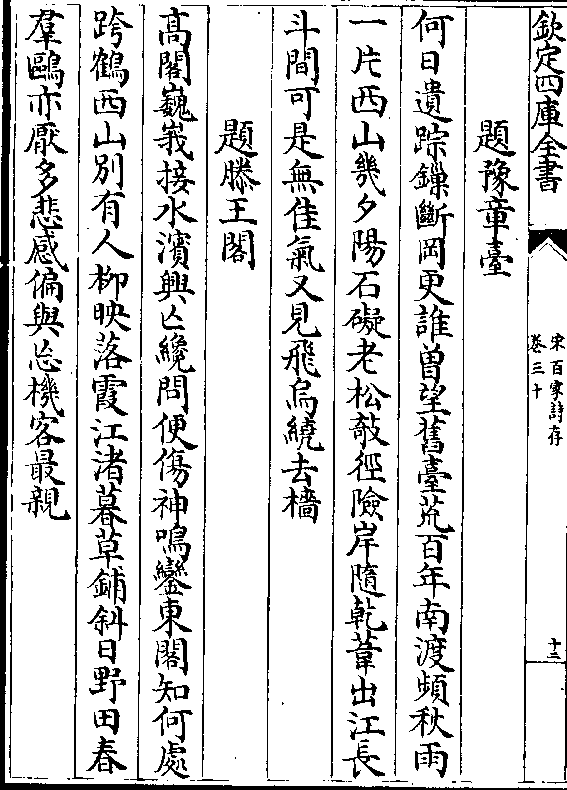 欽定四庫全書
宋百家詩存
卷三十
十二
題豫章臺
何日遺踪鏁斷岡更誰曽望舊臺荒百年南渡頻秋雨
一片西山幾夕陽石礙老松敧徑險岸隨乾葦出江長
斗間可是無佳氣又見飛烏繞去檣
題滕王閣
髙閣巍峩接水濱興亡纔問便傷神鳴鑾東閣知何處
跨鶴西山別有人柳映落霞江渚暮草鋪斜日野田春
羣鷗亦厭多悲感偏與忘機客最親